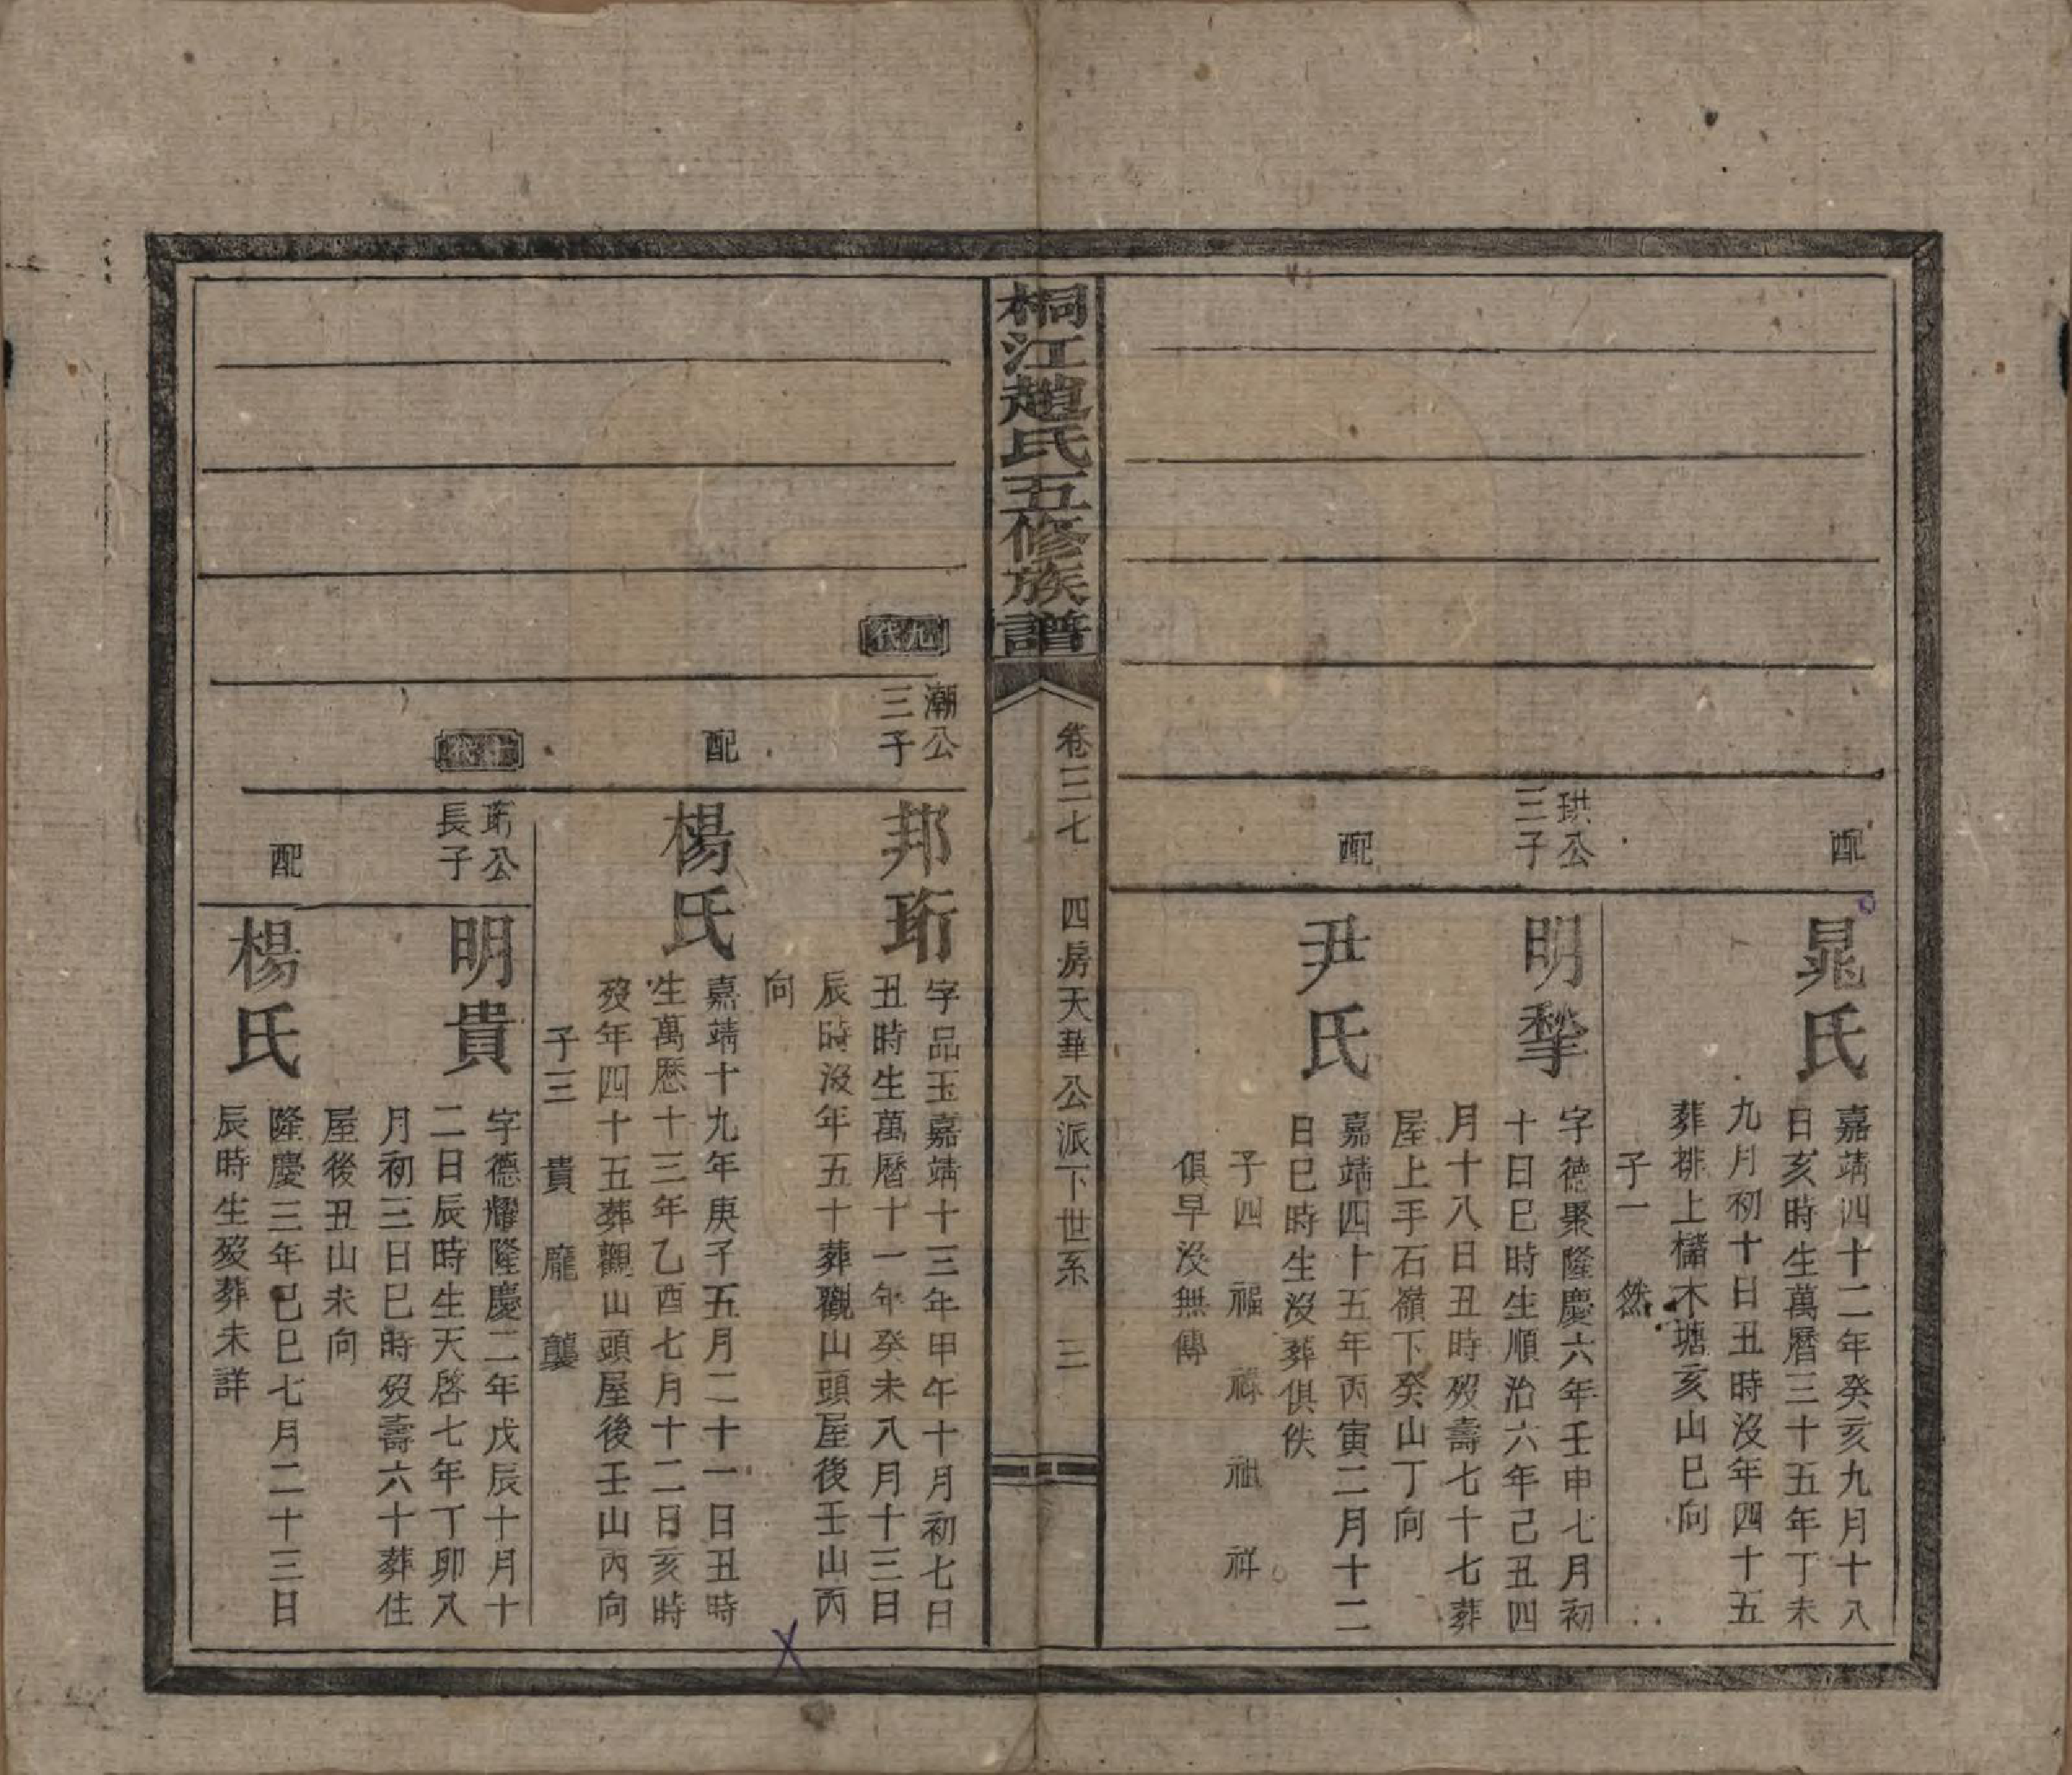 配
晁氏
嘉靖四十二年癸亥九月十八
日亥時生萬曆三十五年丁未
九月初十日丑時沒年四十五
葬排上櫧木塘亥山巳向
子一 然
珙公
三子
明犂
字德聚隆慶六年壬申七月初
十日巳時生順治六年己丑四
月十八日丑時歿壽七十七葬
屋上手石嶺下癸山丁向
配
尹氏
嘉靖四十五年丙寅二月十二
日巳時生沒葬俱佚
子四 福 祿 祖 祥
俱早沒無傳
桐江趙氏五修族譜
卷三七 四房天華公派下世系 三
九代
潮公
三子
邦珩
字品玉嘉靖十三年甲午十月初七日
丑時生萬曆十一年癸未八月十三日
辰時沒年五十葬觀山頭屋後壬山丙
向
配
楊氏
嘉靖十九年庚子五月二十一日丑時
生萬曆十三年乙酉七月十二日亥時
歿年四十五葬觀山頭屋後壬山丙向
子三 貴 龐 龔
十代
珩公
長子
明貴
字德耀隆慶二年戊辰十月十
二日辰時生天啓七年丁卯八
月初三日巳時歿壽六十葬住
屋後丑山未向
配
楊氏
隆慶三年己巳七月二十三日
辰時生歿葬未詳